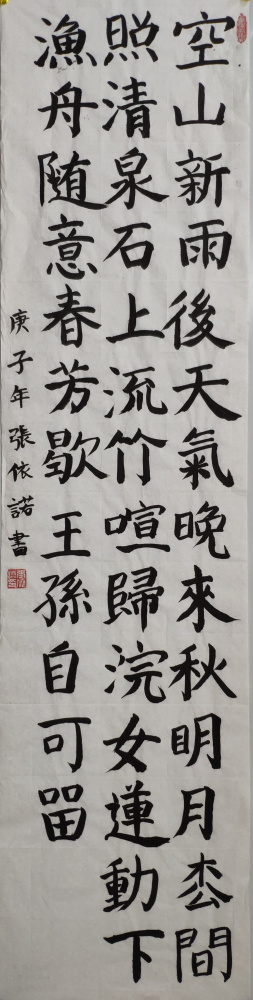 空山新雨後天氣晚來秋明月枩間
照清泉石上流竹喧歸浣女蓮動下
漁舟随意春芳歇王孫自可留
庚子年張依諾書